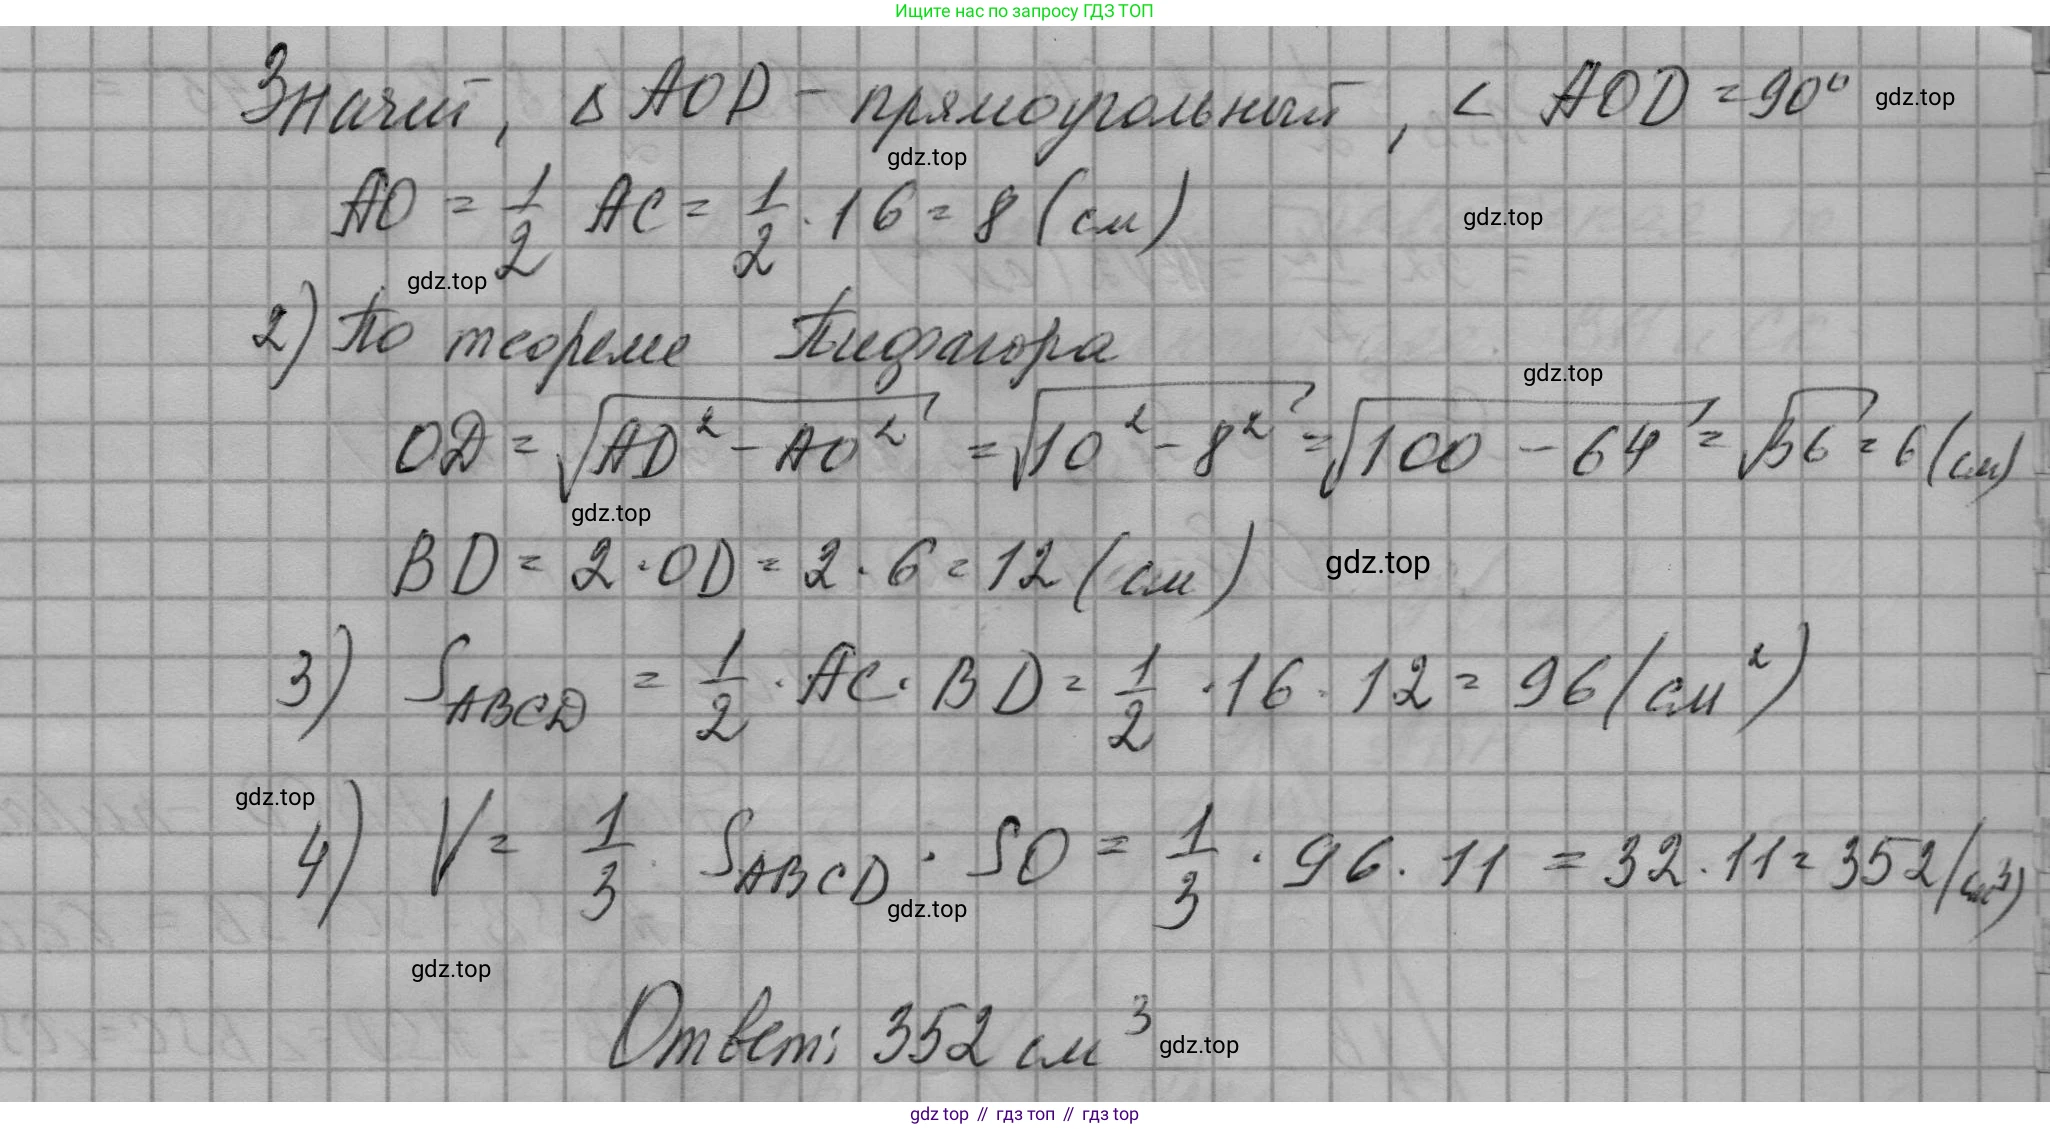 Ищите нас по запросу ГДЗ ТОП
Значит, Δ AOD - прямоугольный, < AOD = 90° gdz.top
gdz.top
AO = 1/2 AC = 1/2 · 16 = 8 (см) gdz.top
gdz.top
2) По теореме Пифагора
gdz.top
OD = √(AD² - AO²) = √(10² - 8²) = √(100 - 64) = √36 = 6 (см)
gdz.top
BD = 2 · OD = 2 · 6 = 12 (см) gdz.top
3) S ABCD = 1/2 · AC · BD = 1/2 · 16 · 12 = 96 (см²)
gdz.top
4) V = 1/3 · S ABCD · SO = 1/3 · 96 · 11 = 32 · 11 = 352 (см³)
gdz.top
gdz.top
Ответ: 352 см³ gdz.top
gdz top // гдз топ // гдз top